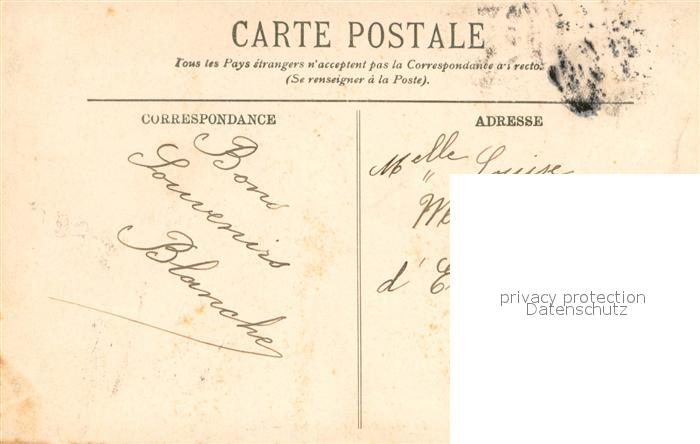 CARTE POSTALE
Tous les Pays étrangers n'acceptent pas la Correspondance au recto.
(Se renseigner à la Poste).
CORRESPONDANCE
Bons
Souvenirs
Blanche
ADRESSE
Melle Louise
d'
privacy protection
Datenschutz